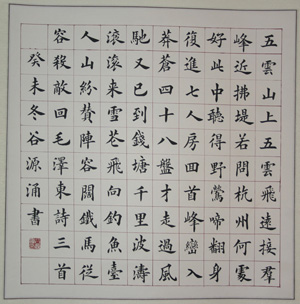 五雲山上五雲飛遠接羣
峰近拂堤若問杭州何處
好此中聽得野鶯啼翻身
復進七人房回首峰巒入
莽蒼四十八盤才走過風
馳又已到錢塘千里波濤
滾滾來雪花飛向釣魚臺
人山紛贊陣容闊鐵馬從
容殺敵回毛澤東詩三首
癸未冬谷源涌書